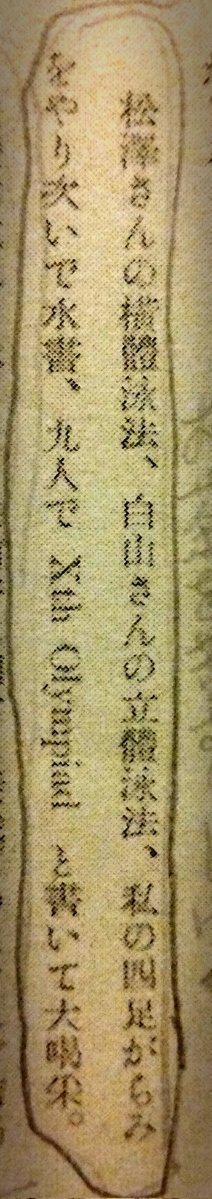 松澤さんの横體泳法、白山さんの立體泳法、私の四足がらみ
をやり次いで水書、九人で Xth Olympiad と書いて大喝采。